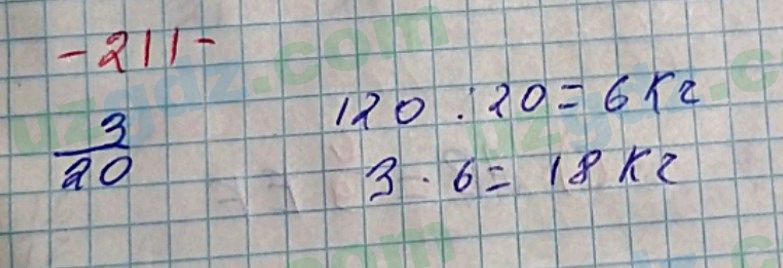 -211-
3/20
120 : 20 = 6 кг
3 · 6 = 18 кг
uzgdz.com